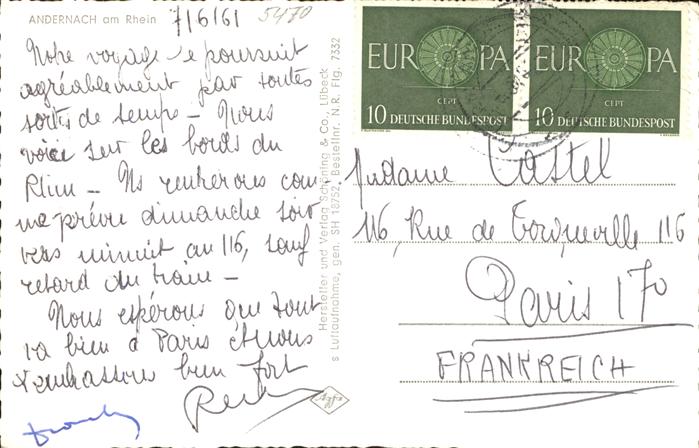 ANDERNACH am Rhein
7/6/61
5470
Notre voyage se poursuit
agréablement par toutes
sortes de temps - Nous
voici sur les bords du
Rhin - Ns rentrerons com-
me prévu dimanche soir
vers minuit au 116, sauf
retard du train -
Nous espérons que tout
va bien à Paris et nous
t'embrassons bien fort
Hersteller und Verlag Schöning & Co., Lübeck
s Luftaufnahme, gen. SH 18752, Bestellnr. N.R. Flg. 7332
Agfa
EUROPA
CEPT
10 DEUTSCHE BUNDESPOST
EUROPA
CEPT
10 DEUTSCHE BUNDESPOST
Madame Castel
116, Rue de Tocqueville 116
Paris 17º
FRANKREICH